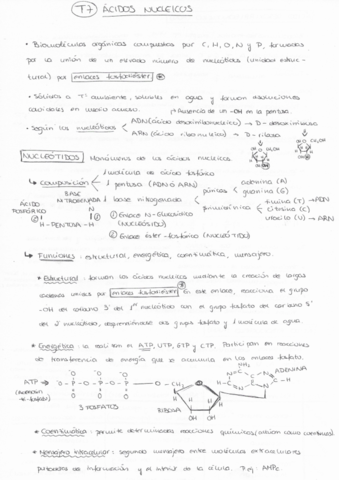 T7 ÁCIDOS NUCLEICOS
• Biomoléculas orgánicas compuestas por C, H, O, N y P, formadas
por la unión de un elevado número de nucleótidos (unidades estruc-
tural) por enlaces fosfodiéster
• Sólidos a Tª ambiente, solubles en agua y forman disoluciones
coloidales en medio acuoso.
Ausencia de un -OH en la pentosa.
• Según los nucleótidos
ADN (ácido desoxirribonucleico) → D-desoxirribosa
ARN (ácido ribonucleico) → D-ribosa
NUCLEÓTIDOS Monómeros de los ácidos nucleicos
↳ composición
1 molécula de ácido fosfórico
1 pentosa (ADN o ARN)
1 base nitrogenada
púricas
adenina (A)
guanina (G)
pirimidínicas
timina (T) → ADN
citosina (C)
uracilo (U) → ARN
BASE
NITROGENADA
ÁCIDO
FOSFÓRICO
N
H-PENTOSA-H
① Enlace N-Glucosídico
(NUCLEÓSIDO)
② Enlace éster-fosfórico (NUCLEÓTIDO)
↳ Funciones: estructural, energética, coenzimática, mensajero.
• Estructural: forman los ácidos nucleicos mediante la creación de largas
cadenas unidas por enlaces fosfodiéster en este enlace, reacciona el grupo
-OH del carbono 3' del 1er nucleótido con el grupo fosfato del carbono 5'
del 2º nucleótido, desprendiéndose del grupo fosfato y 1 molécula de agua.
• Energética: la realizan el ATP, UTP, GTP y CTP. Participan en reacciones
de transferencia de energía que se acumula en los enlaces fosfato.
ATP →
(Adenosín
tri-fosfato)
O O O
⁻O - P - O - P - O - P - O - CH₂
3 FOSFATOS
RIBOSA
OH OH
ADENINA
• Coenzimática: permite determinadas reacciones químicas (actúan como coenzimas)
• Mensajero intracelular: segundo mensajero entre moléculas extracelulares
portadoras de información y el interior de la célula. P.ej. AMPc.